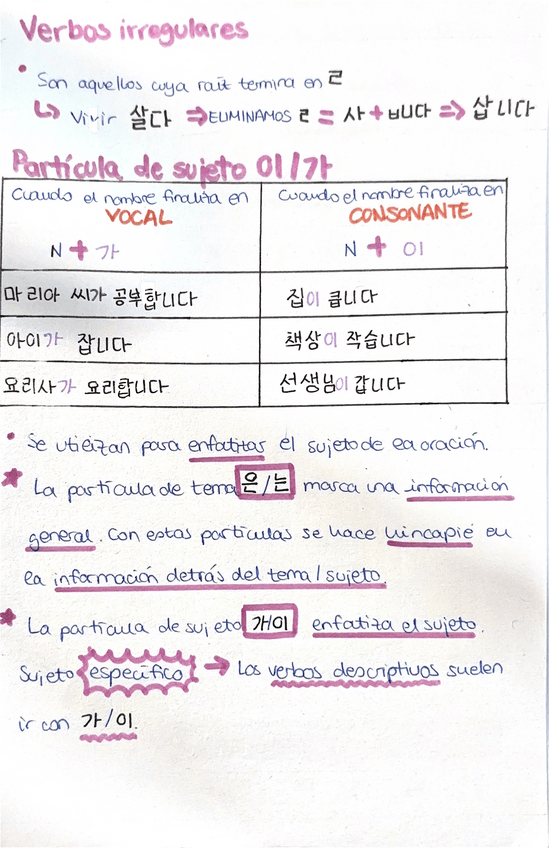 Verbos irregulares
• Son aquellos cuya raíz termina en ㄹ
↳ Vivir 살다 ⇒ ELIMINAMOS ㄹ = 사 + ㅂ니다 ⇒ 삽니다
Partícula de sujeto 이/가
Cuando el nombre finaliza en
VOCAL
N + 가
Cuando el nombre finaliza en
CONSONANTE
N + 이
마리아 씨가 공부합니다
집이 큽니다
아이가 잡니다
책상이 작습니다
요리사가 요리합니다
선생님이 갑니다
• Se utilizan para enfatizar el sujeto de la oración.
★ La partícula de tema 은/는 marca una información
general. Con estas partículas se hace hincapié en
la información detrás del tema/sujeto.
★ La partícula de sujeto 가/이 enfatiza el sujeto.
Sujeto específico → Los verbos descriptivos suelen
ir con 가/이.